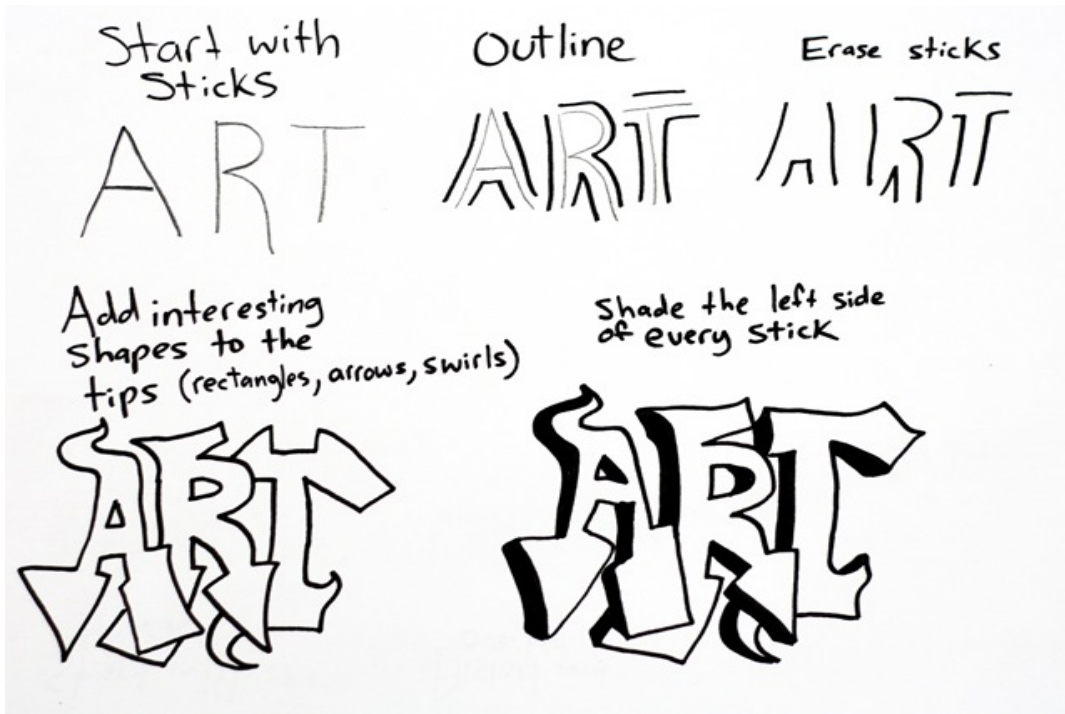 Start with
Sticks
ART
Outline
ART
Erase sticks
ART
Add interesting
shapes to the
tips (rectangles, arrows, swirls)
ART
Shade the left side
of every stick
ART